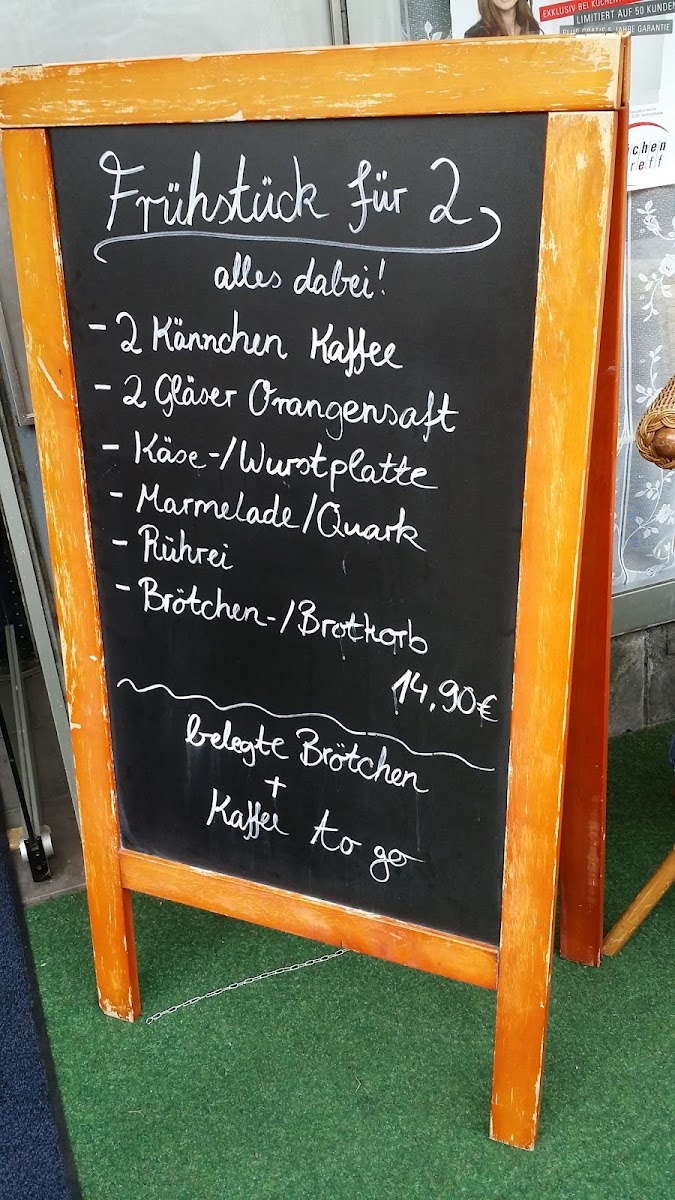 EXKLUSIV BEI KÜCHEN
LIMITIERT AUF 50 KUNDEN
PLUS GRATIS 5 JAHRE GARANTIE
chen
reff
Frühstück für 2
alles dabei!
- 2 Kännchen Kaffee
- 2 Gläser Orangensaft
- Käse-/Wurstplatte
- Marmelade/Quark
- Rührei
- Brötchen-/Brotkorb
14,90€
belegte Brötchen
+
Kaffee to go